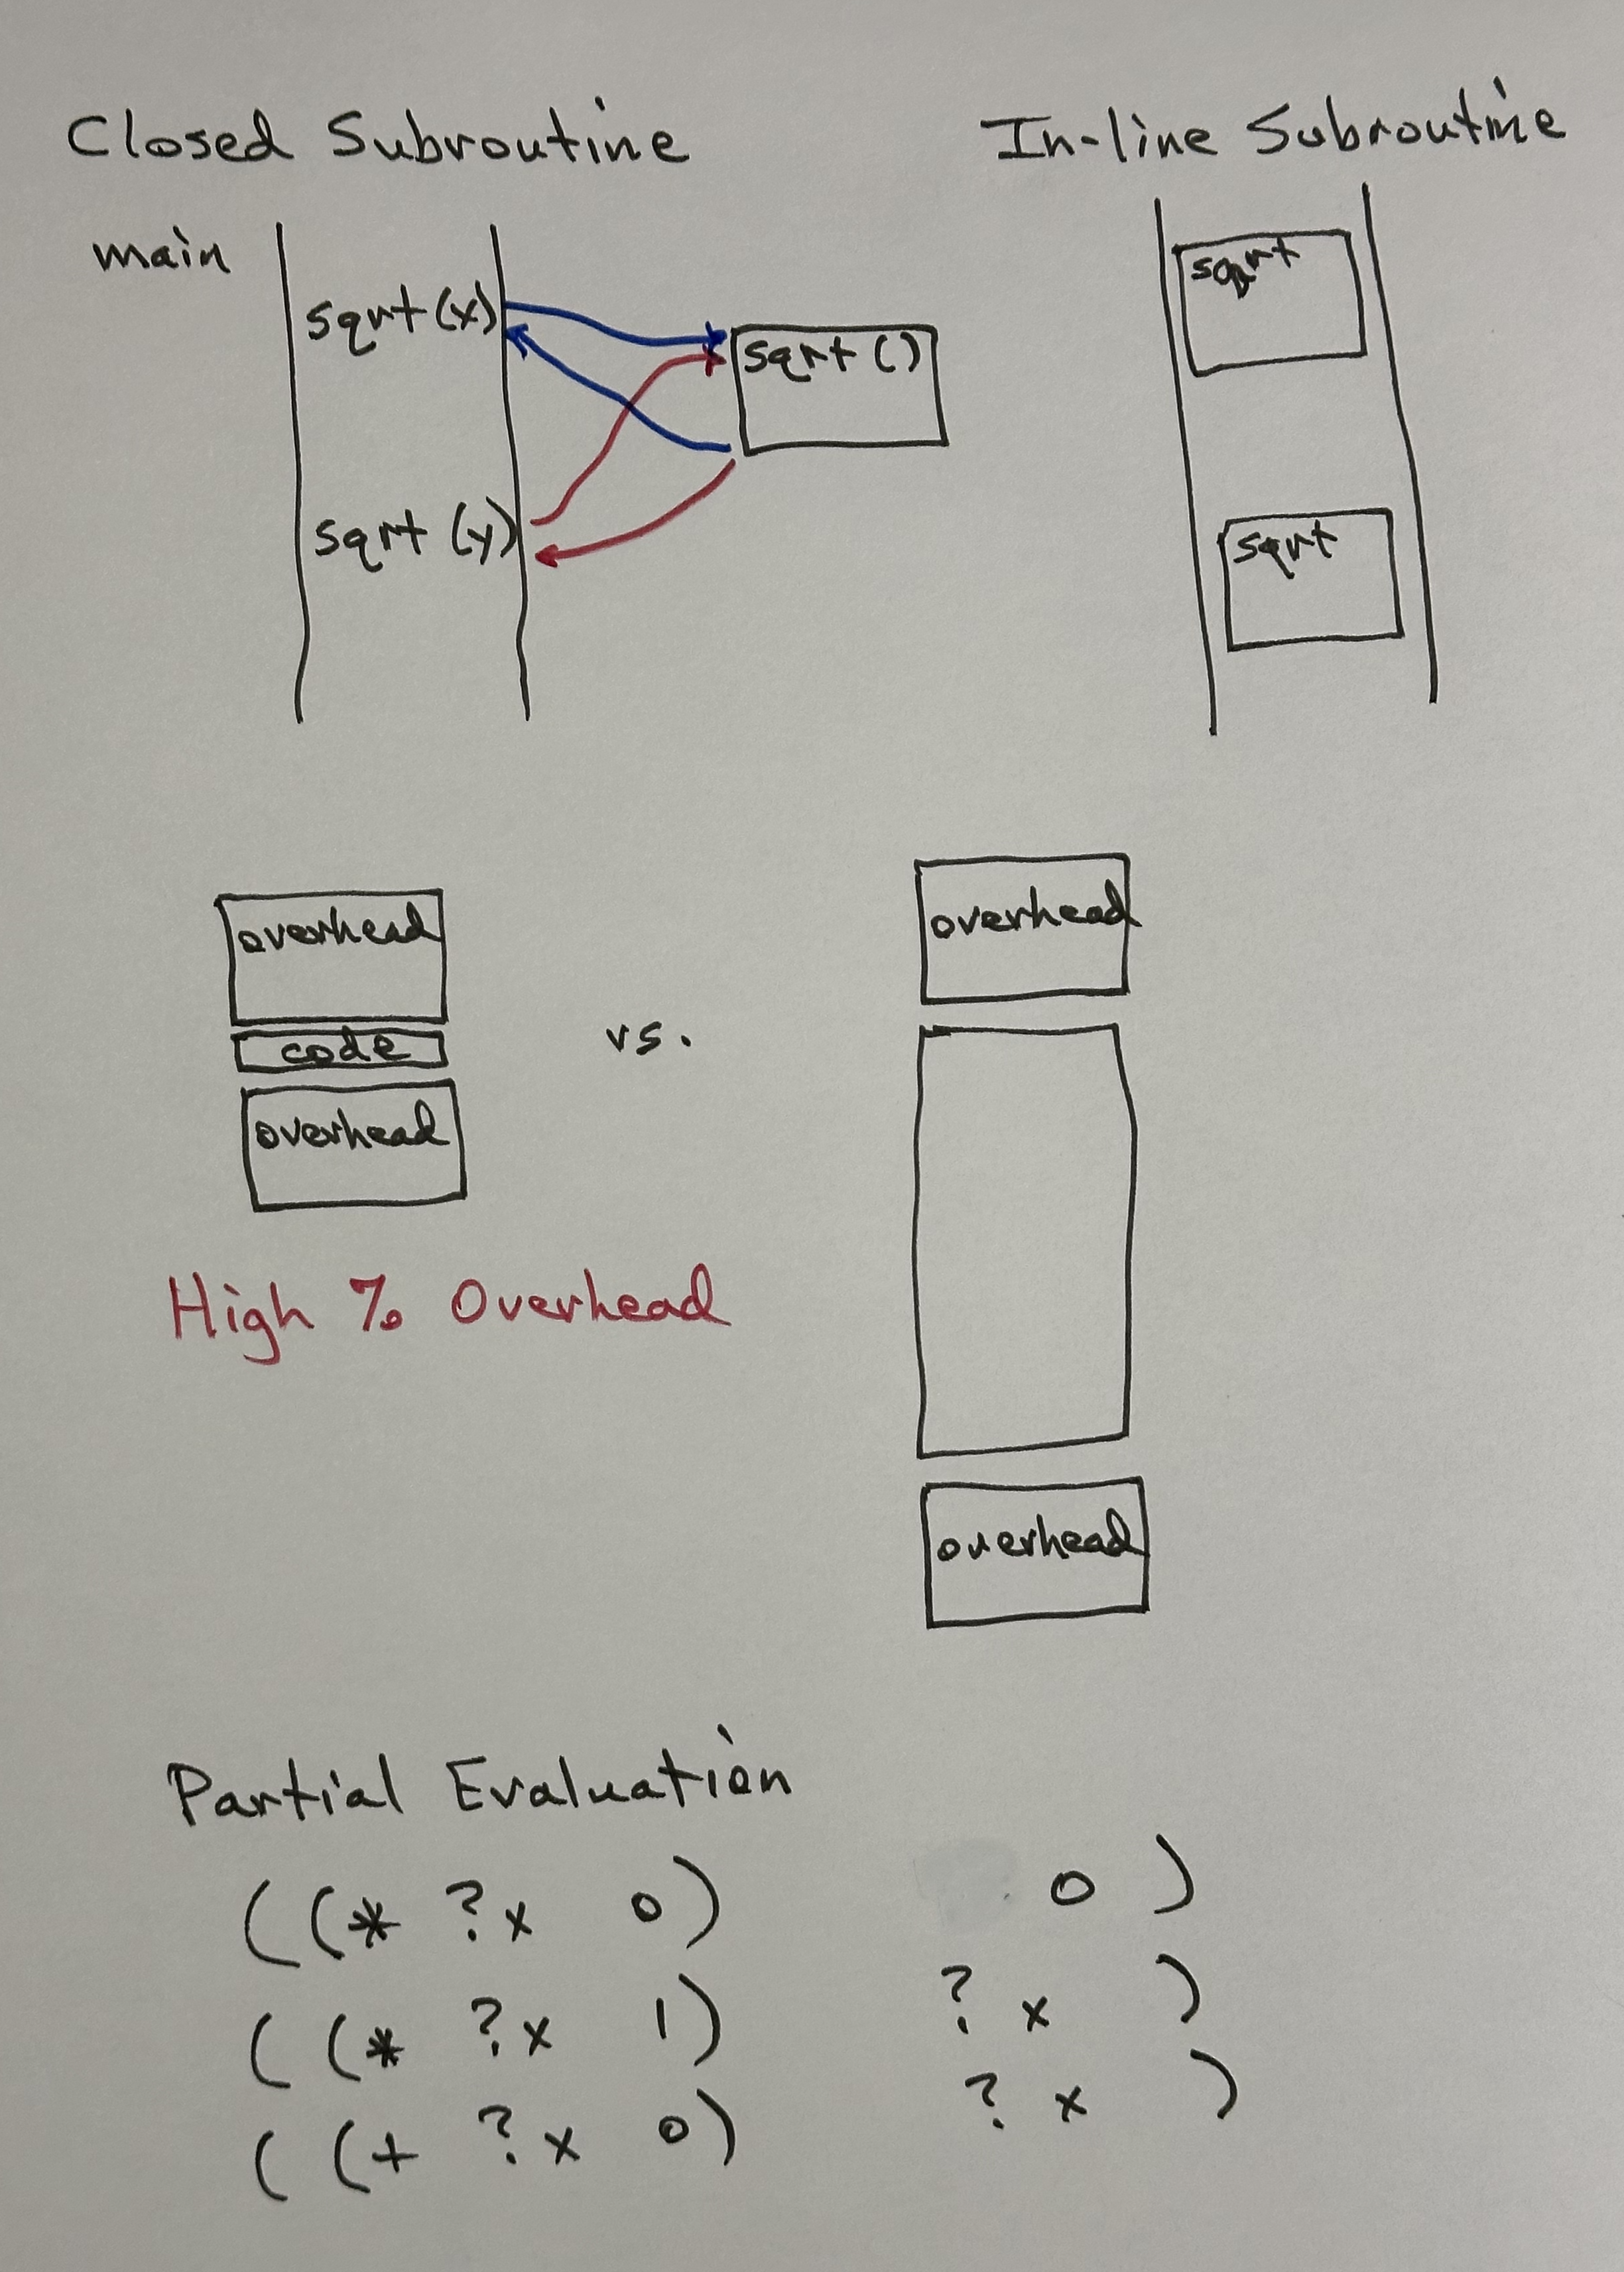 Closed Subroutine
In-line Subroutine
main
sqrt (x)
sqrt ()
sqrt (y)
sqrt
sqrt
overhead
code
overhead
vs.
overhead
overhead
High % Overhead
Partial Evaluation
( (* ?x 0) 0 )
( (* ?x 1) ?x )
( (+ ?x 0) ?x )